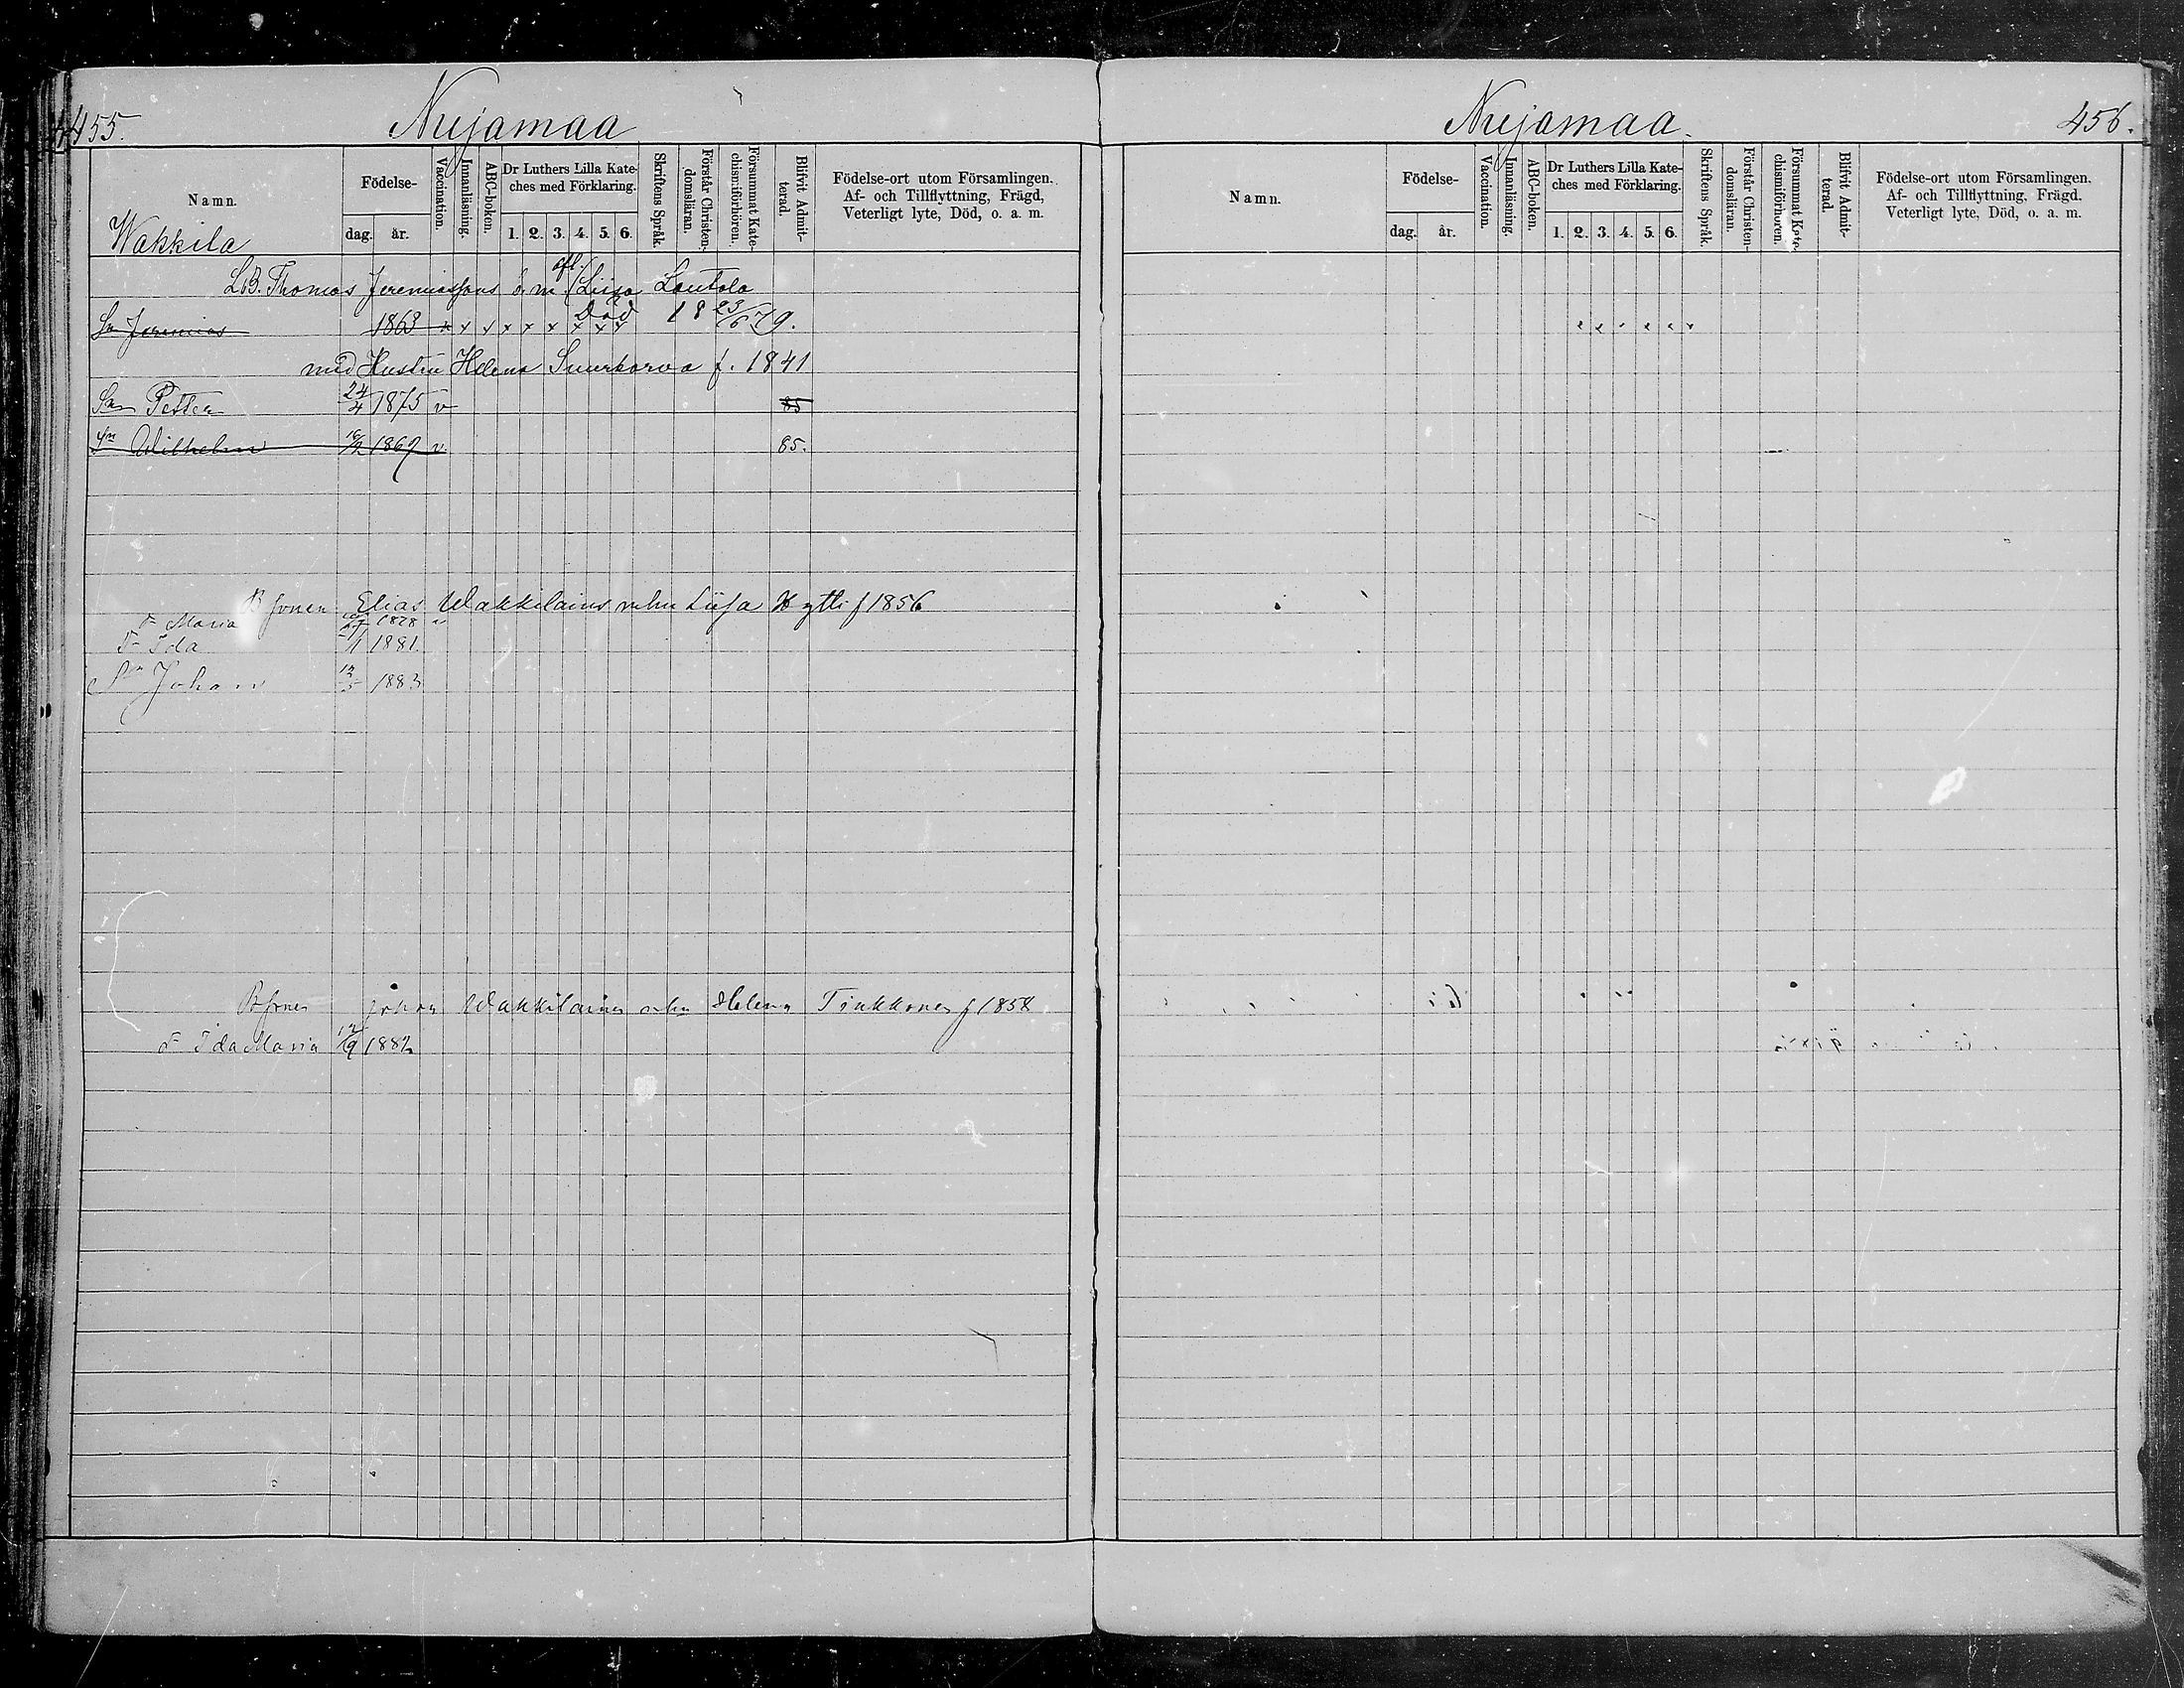 455.
Nuijamaa
Namn.
Födelse-
dag.
år.
Vaccination.
Innanläsning.
ABC-boken.
Dr Luthers Lilla Kate-
ches med Förklaring.
1. 2. 3. 4. 5. 6.
Skriftens Språk.
Förstår Christen-
domsläran.
Försummat Kate-
chismiförhören.
Blifvit Admit-
terad.
Födelse-ort utom Församlingen.
Af- och Tillflyttning, Frägd,
Veterligt lyte, Död, o. a. m.
Wakkila
afl.
LB. Thomas Jeremiassons b. m. (Liisa Lautala
Död 18 23/6 79.
Sn Jeremias 1863 x x x x x x x x x
med Hustru Helena Suurkorva f. 1841
Sn Petter 24/4 1875 v 85
Sn Wilhelm 16/2 1869 v. 85.
Bsonen Elias Wakkilains mhu Liisa Hytti f 1856
Dr Maria 1878 v
Dr Ida 1881.
Sn Johan 13/5 1883
Bsonen Johan Wakkilaines mhu Helena Tiukkonen f 1858
Dr Ida Maria 12/9 1882
Nuijamaa.
456.
Namn.
Födelse-
dag.
år.
Vaccination.
Innanläsning.
ABC-boken.
Dr Luthers Lilla Kate-
ches med Förklaring.
1. 2. 3. 4. 5. 6.
Skriftens Språk.
Förstår Christen-
domsläran.
Försummat Kate-
chismiförhören.
Blifvit Admit-
terad.
Födelse-ort utom Församlingen.
Af- och Tillflyttning, Frägd.
Veterligt lyte, Död, o. a. m.